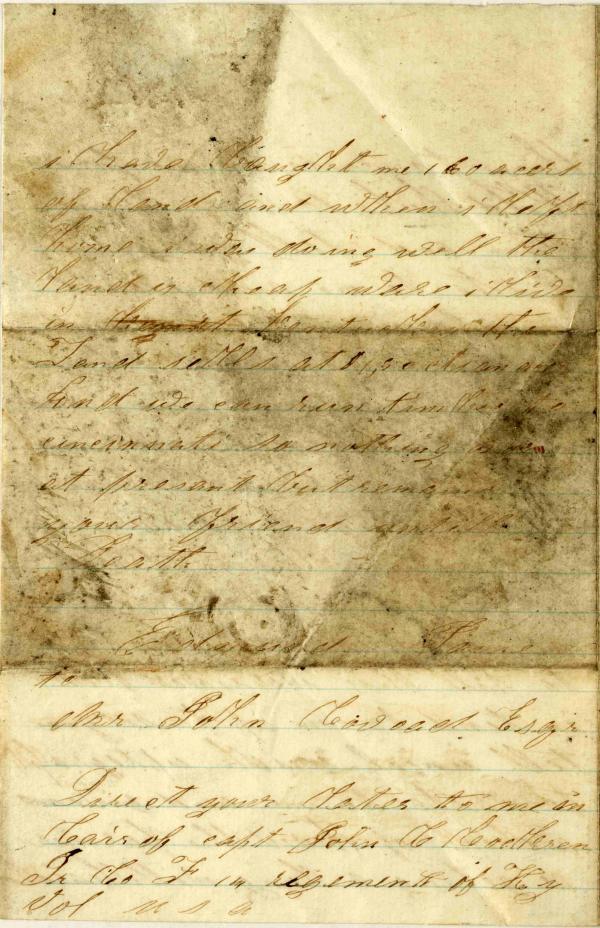 i have baught me 160 acers
of Land and when i Left
home i was doing well the
Land is cheap ware i Live
in Kentucky the
Land sells at
and we can run timber to
cincinnati so nothing more
at present but remains
your friend untill
Death
Edmund
to
Mr John Esqr
Direct your Later to me in
Cair of capt John C
Co F 14 regement of Ky
Vol U S A